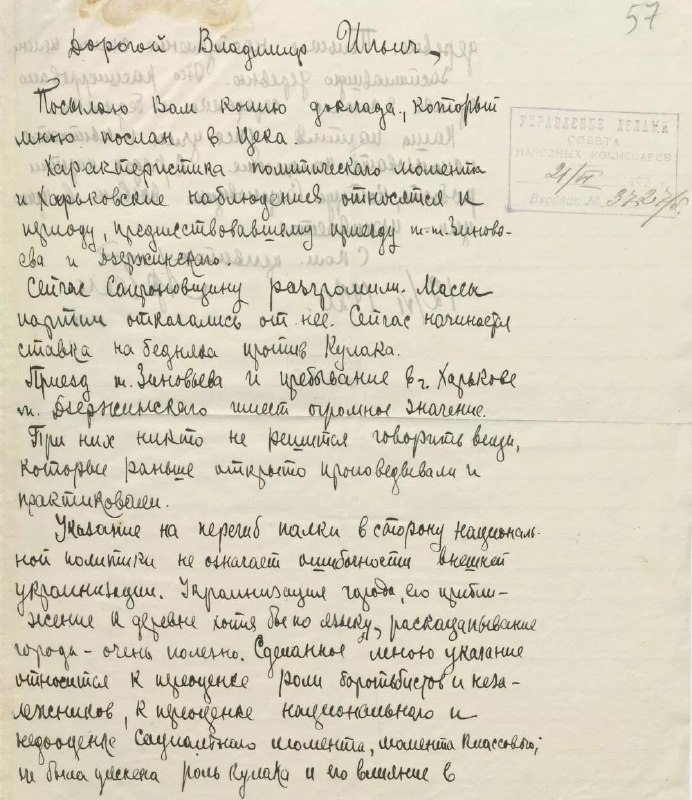 57
Дорогой Владимир Ильич,
Посылаю Вам копию доклада, который
мною послан в Цека.
Характеристика политического момента
и Харьковские наблюдения относятся к
периоду, предшествовавшему приезду т.т. Зиновь-
ева и Дзержинского.
Сейчас Сапроновщину разгромили. Массы
партии отказались от нее. Сейчас начинается
ставка на бедняка против Кулака.
Приезд т. Зиновьева и пребывание в г. Харькове
т. Дзержинского имеет огромное значение.
При них никто не решится говорить вещи,
которые раньше открыто проповедывали и
практиковали.
Указание на перегиб палки в сторону националь-
ной политики не означает ошибочности внешней
украинизации. Украинизация города, его прибли-
жение к деревне хотя бы по языку, раскацапывание
города – очень полезно. Сделанное мною указание
относится к переоценке роли боротьбистов и неза-
лежников, к переоценке национального и
недооценке социального момента, момента классового,
не была учтена роль кулака и его влияние в
УПРАВЛЕНИЕ ДЕЛАМИ
СОВЕТА
НАРОДНЫХ КОМИССАРОВ
21/VI 192
Входящ. №